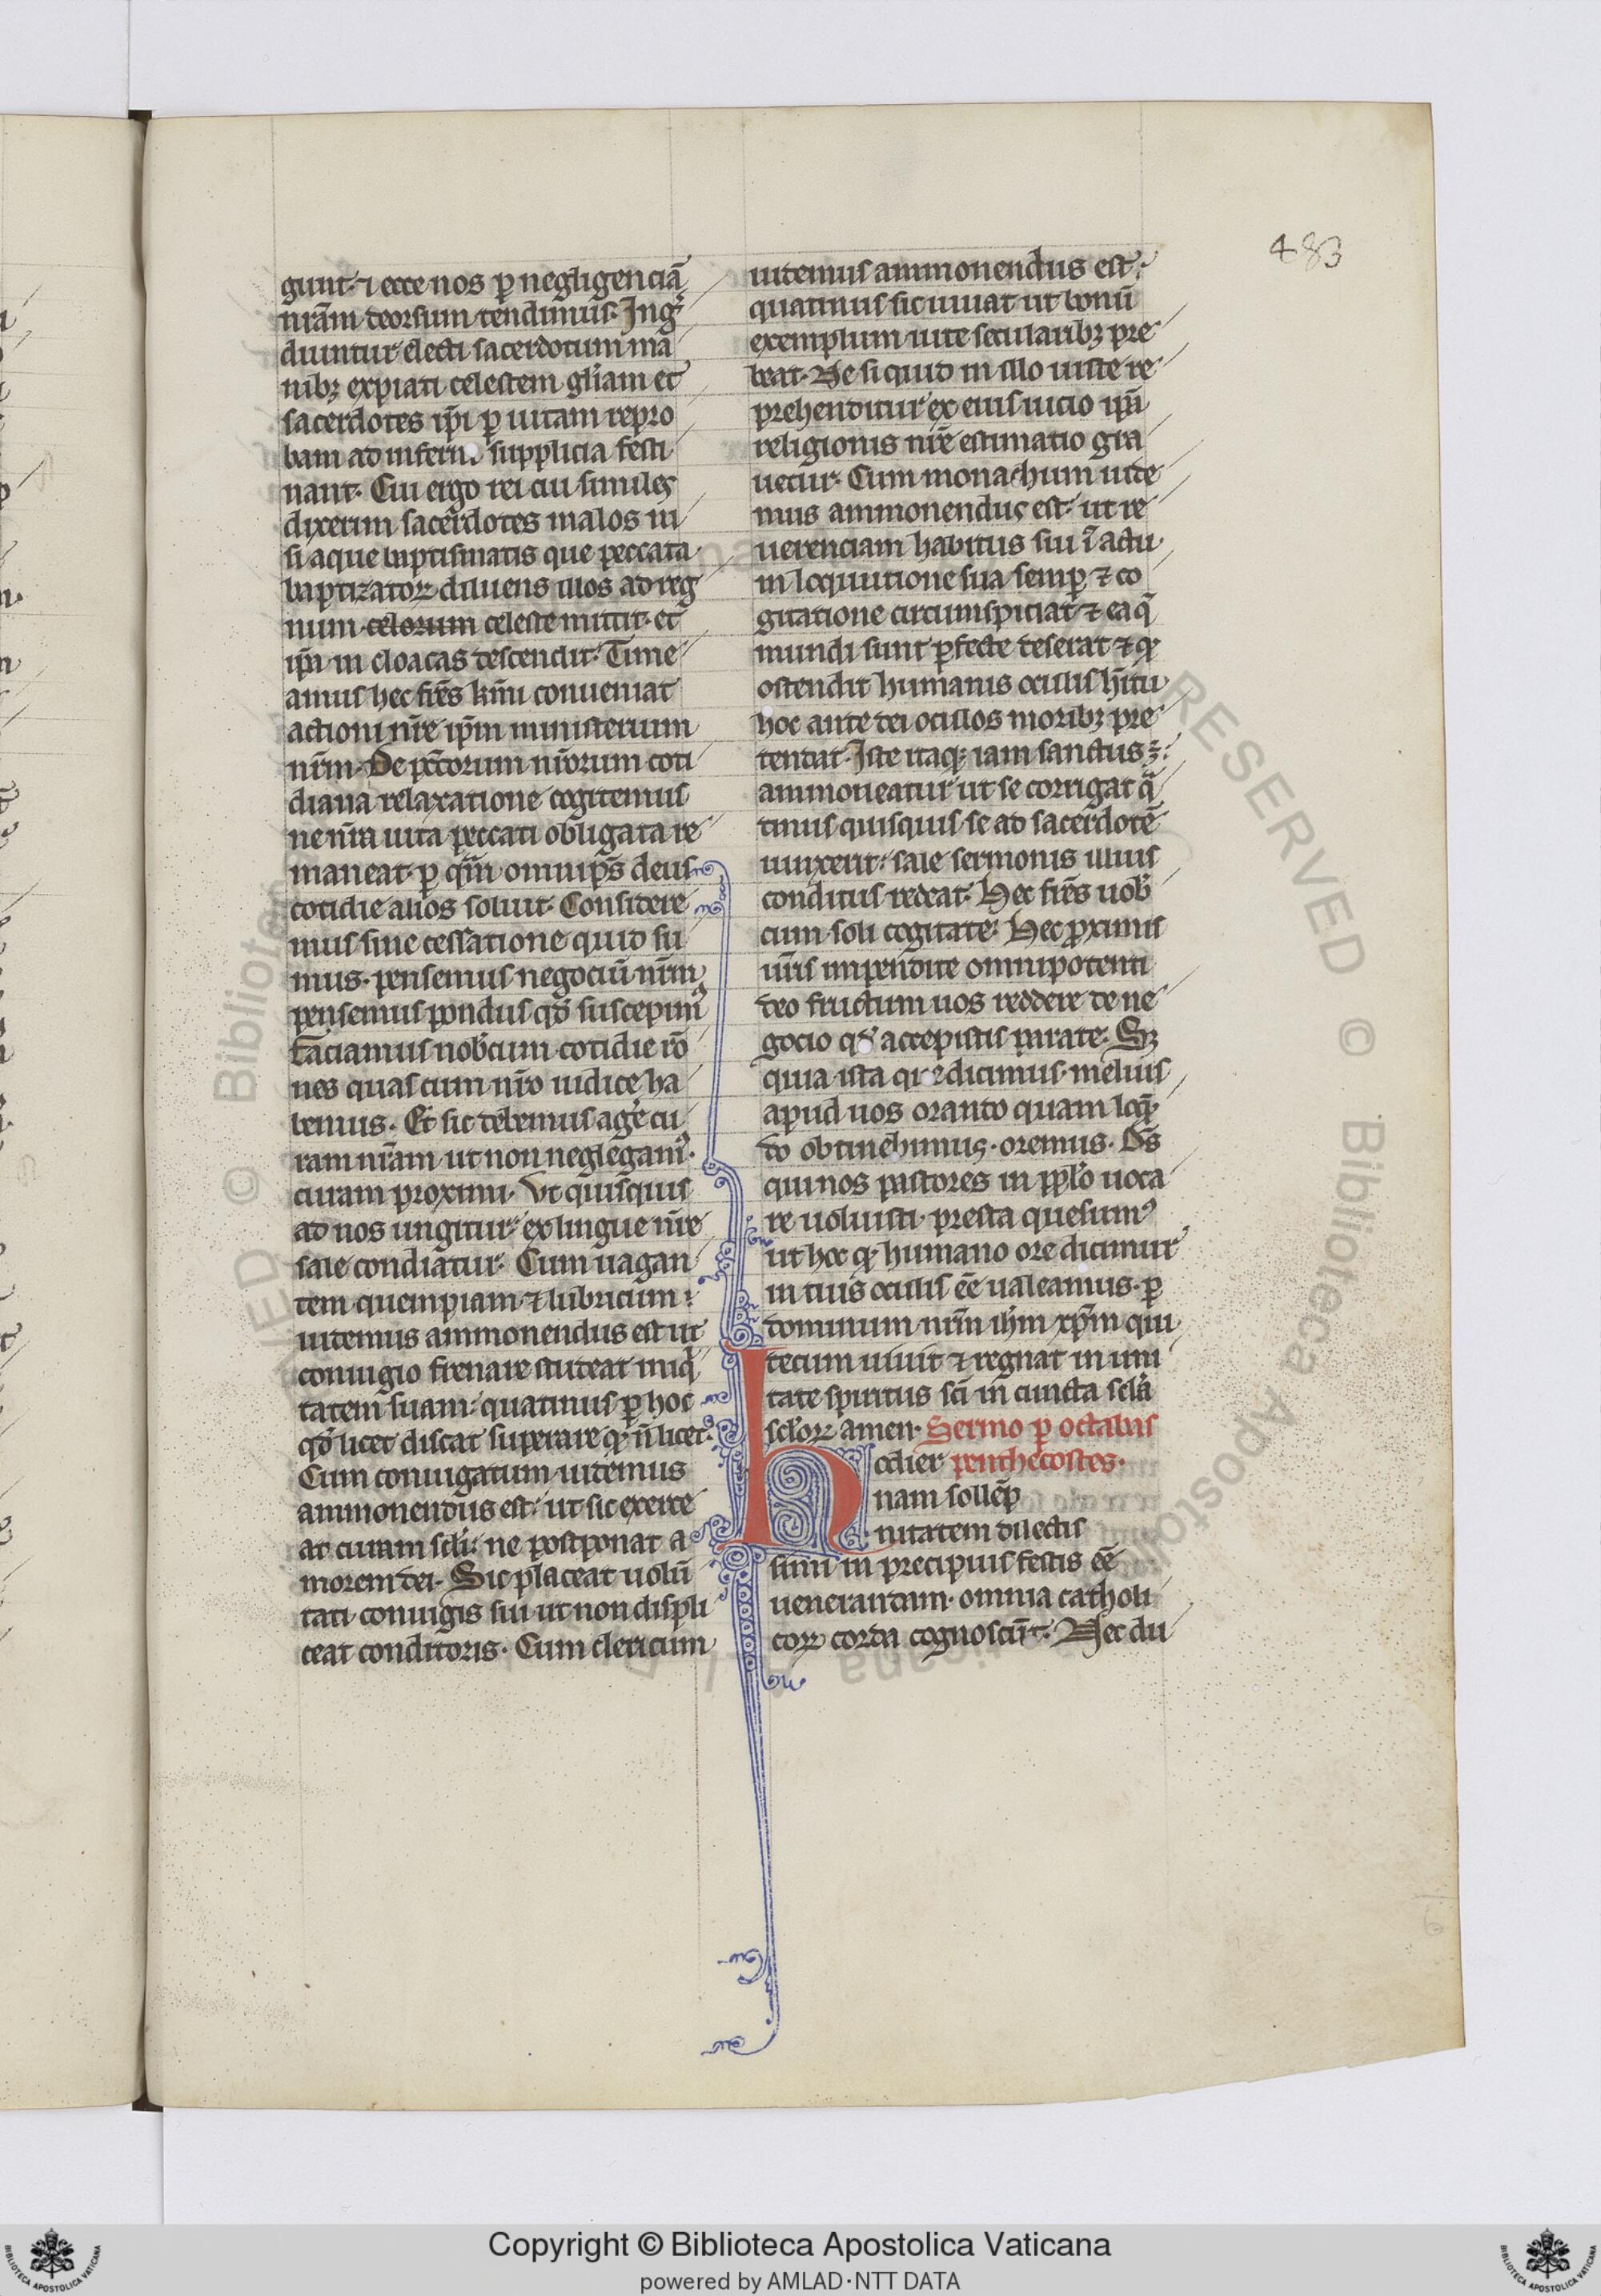 483
gunt· ⁊ ecce nos ꝑ negligenciã
nr̃am deorsum tendimus. Ingͥ
diuntur electi sacerdotum ma
nibꝫ expiati celestem glͥam et
sacerdotes ip̃i ꝑ uitam repro
bam ad inferni supplicia festi
nant. Cui ergo rei cui similes
dixerim sacerdotes malos ni
si aque baptismatis que peccata
baptizatoꝝ diluens illos ad reg
num celorum celeste mittit· et
ip̃a in cloacas descendit. Time
amus hec fr̃es km̃i conueniat
actioni nr̃e ip̃m ministerium
nr̃m. De pc̃torum nr̃orum coti
diana relaxatione cogitemus
ne nr̃a uita peccati obligata re
maneat· ꝑ qͣm omnip̃s deus
cotidie alios soluit. Considere
mus sine cessatione quid su
mus· pensemus negociũ nr̃m
pensemus pondus qd̾ suscepimꝰ
faciamus nobcum cotidie rõ
nes quas cum nr̃o iudice ha
bemus. Et sic debemus agẽ cu
ram nr̃am ut non neglegamꝰ·
curam proximi. Vt quisquis
ad nos ungitur· ex lingue nr̃e
sale condiatur. Cum uagan
tem quempiam ⁊ lubricum
uidemus ammonendus est ut
coniugio frenare studeat iniqͥ
tatem suam· quatinus ꝑ hoc
qd̾ licet discat superare ꝙ ñ licet.
Cum coniugatum uidemus
ammonendus est· ut sic exerce
at curam scl̃i· ne postponat a
morem dei. Sic placeat uolũ
tati coniugis sui ut non displi
ceat conditoris. Cum clericum
uidemus ammonendus est·
quatinus sic uiuat ut bonũ
exemplum uite secularibꝫ pre
beat. Ne si quid in illo iuste re
prehenditur ex eius uicio ip̃a
religionis nr̃e estimatio gra
uetur. Cum monachum uide
mus ammonendus est· ut re
uerenciam habitus sui ĩ actu
in loquutione sua semꝑ ⁊ co
gitatione circumspiciat ⁊ ea q̃
mundi sunt ꝑfecte deserat ⁊ ꝙ
ostendit humanis oculis hĩtu
hoc ante dei oculos moribꝫ pre
tendat. Iste itaqꝫ iam sanctus ẽ·
ammoneatur ut se corrigat qͣ
tinus quisquis se ad sacerdotẽ
iunxerit· sale sermonis illius
conditus redeat. Hec fr̃es uob̾
cum soli cogitate. Hec ꝓximis
ur̃is impendite omnipotenti
deo fructum uos reddere de ne
gocio qd̾ accepistis parate. Sꝫ
quia ista que dicimus melius
apud uos orando quam loqͣ
do obtinebimus. oremus. Ds̃
qui nos pastores in pplo uoca
re uoluisti· presta quesumꝰ
ut hoc ꝙ humano ore dicimur
in tuis oculis ẽe ualeamus. ꝑ
dominum nr̃m ih̃m xp̃m qui
tecum uiuit ⁊ regnat in uni
tate spiritus sc̃i in cuncta scl̾a
scl̾oꝝ amen. Sermo ꝑ octabas
hodier penthecostes.
nam sollẽp
nitatem dilectis
simi in precipuis festis ẽe
uenerandam· omnia catholi
coꝝ corda cognoscũt. Nec du
Copyright © Biblioteca Apostolica Vaticana
powered by AMLAD·NTT DATA